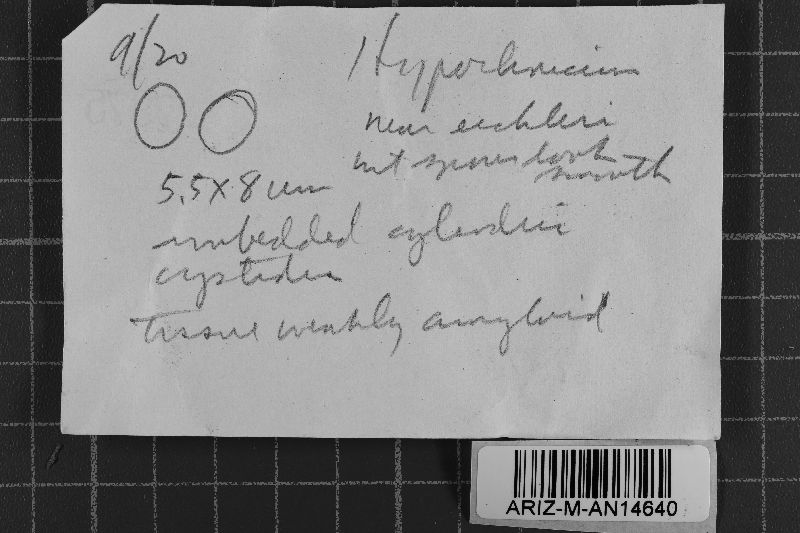 9/20
Hypochnicium
near eichleri
but spores look
smooth
5.5 X 8 um
embedded cylindric
cystidia
tissue weakly amyloid
ARIZ-M-AN14640